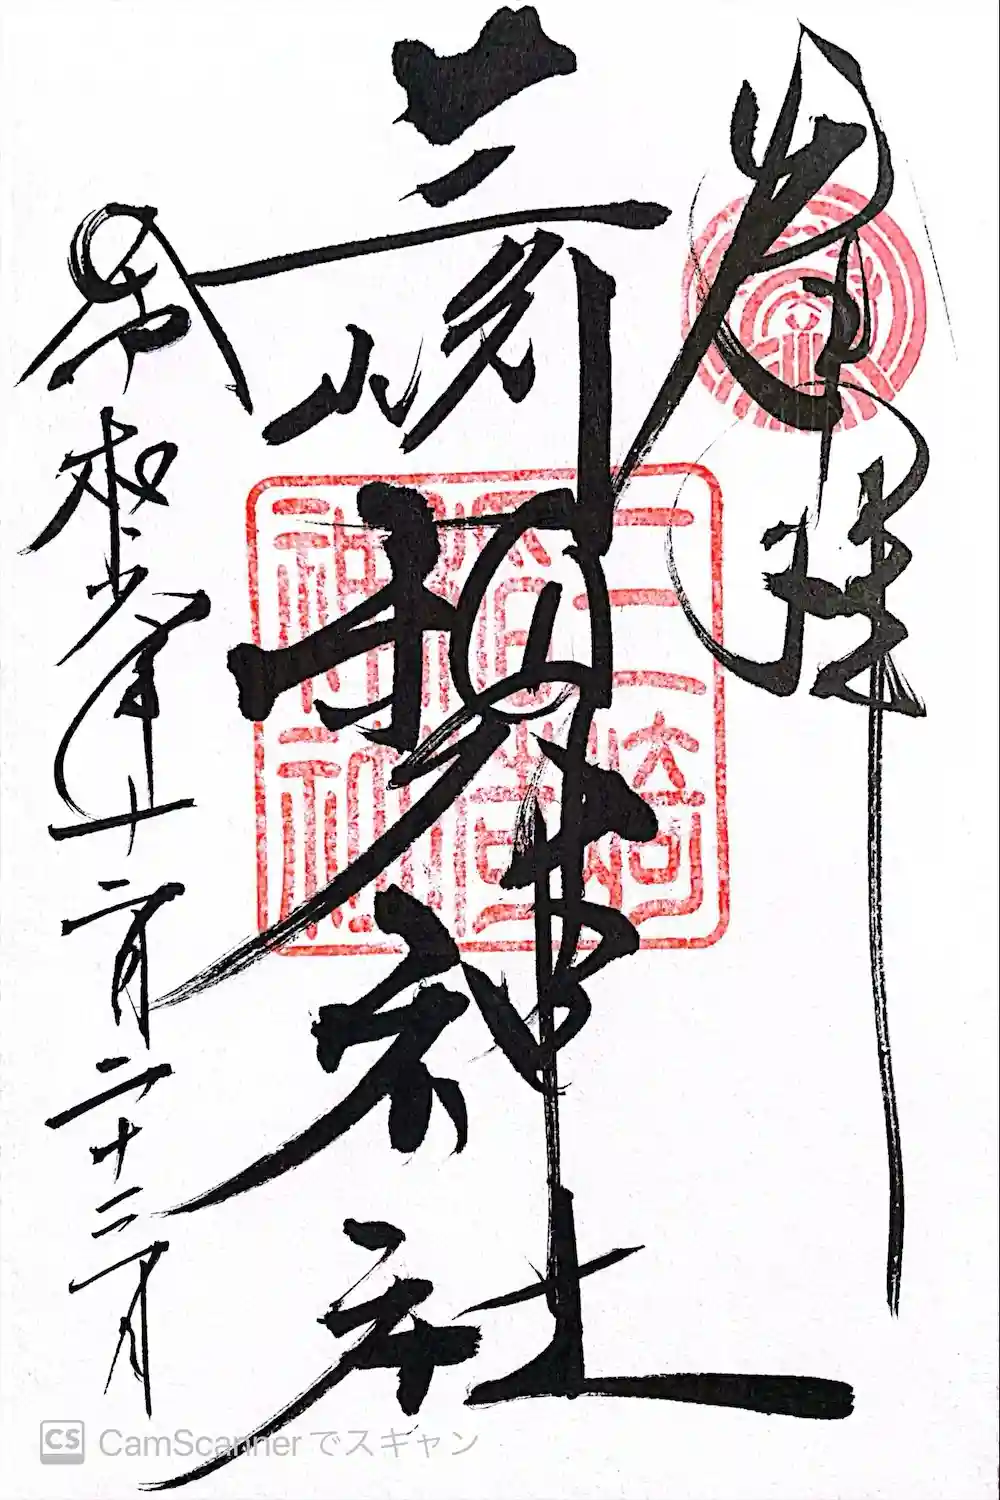 奉拝
三崎稲荷神社
三崎稲荷神社
令和六年十一月二十二日
CS CamScannerでスキャン